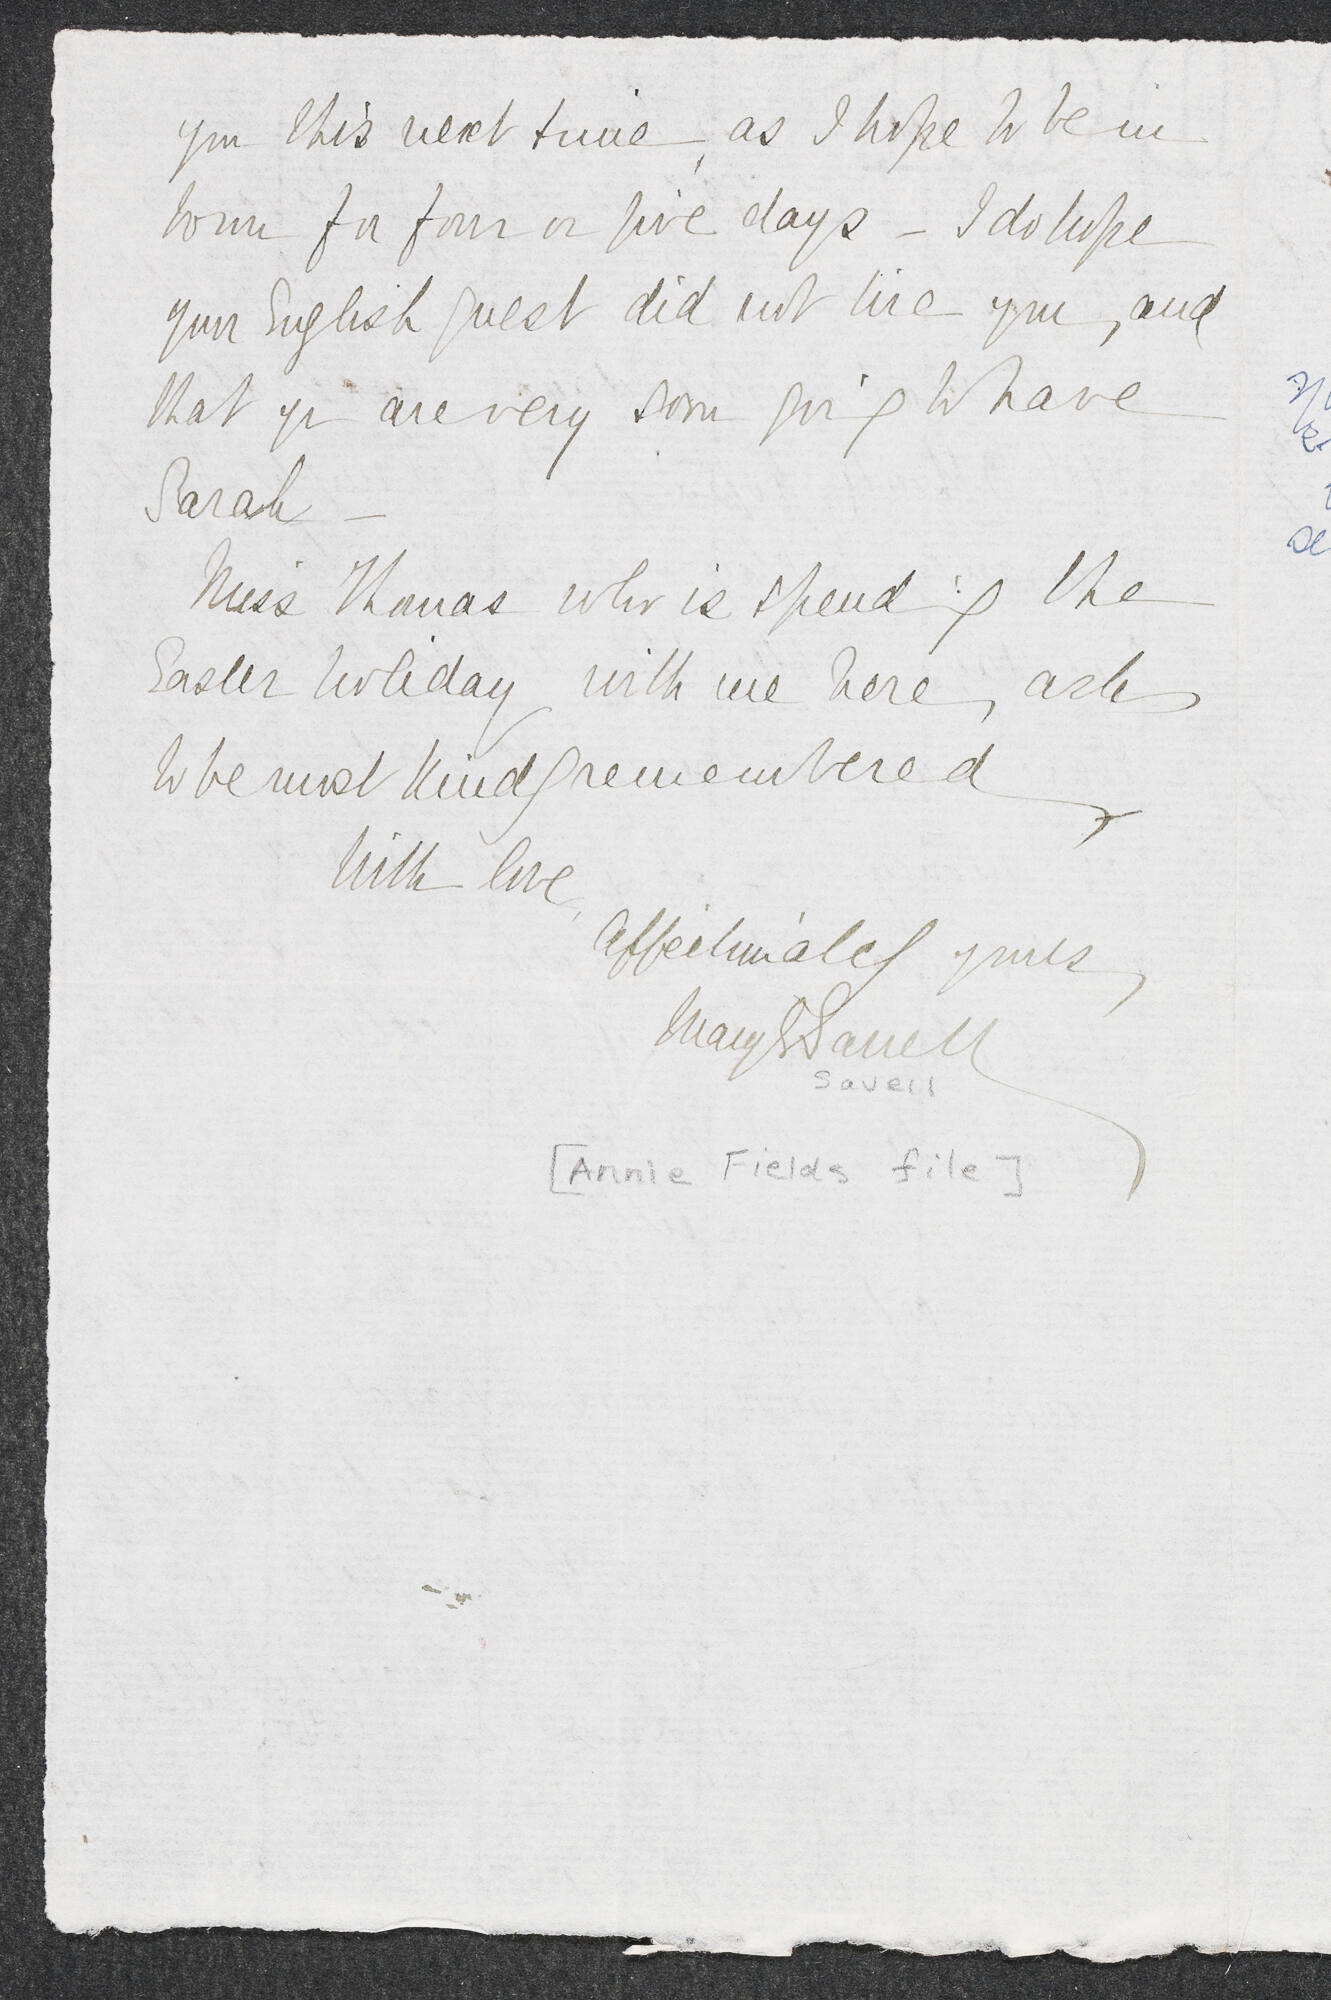 you this next time, as I hope to be in
town for four or five days — I do hope
your English guest did not tire you, and
that yr are very soon going to have
Sarah —
Miss Thomas who is spending the
Easter holiday with me here, asks
to be most kindly remembered
With love,
Affectionately yours,
Mary G Garrett
Savell
[Annie Fields file]